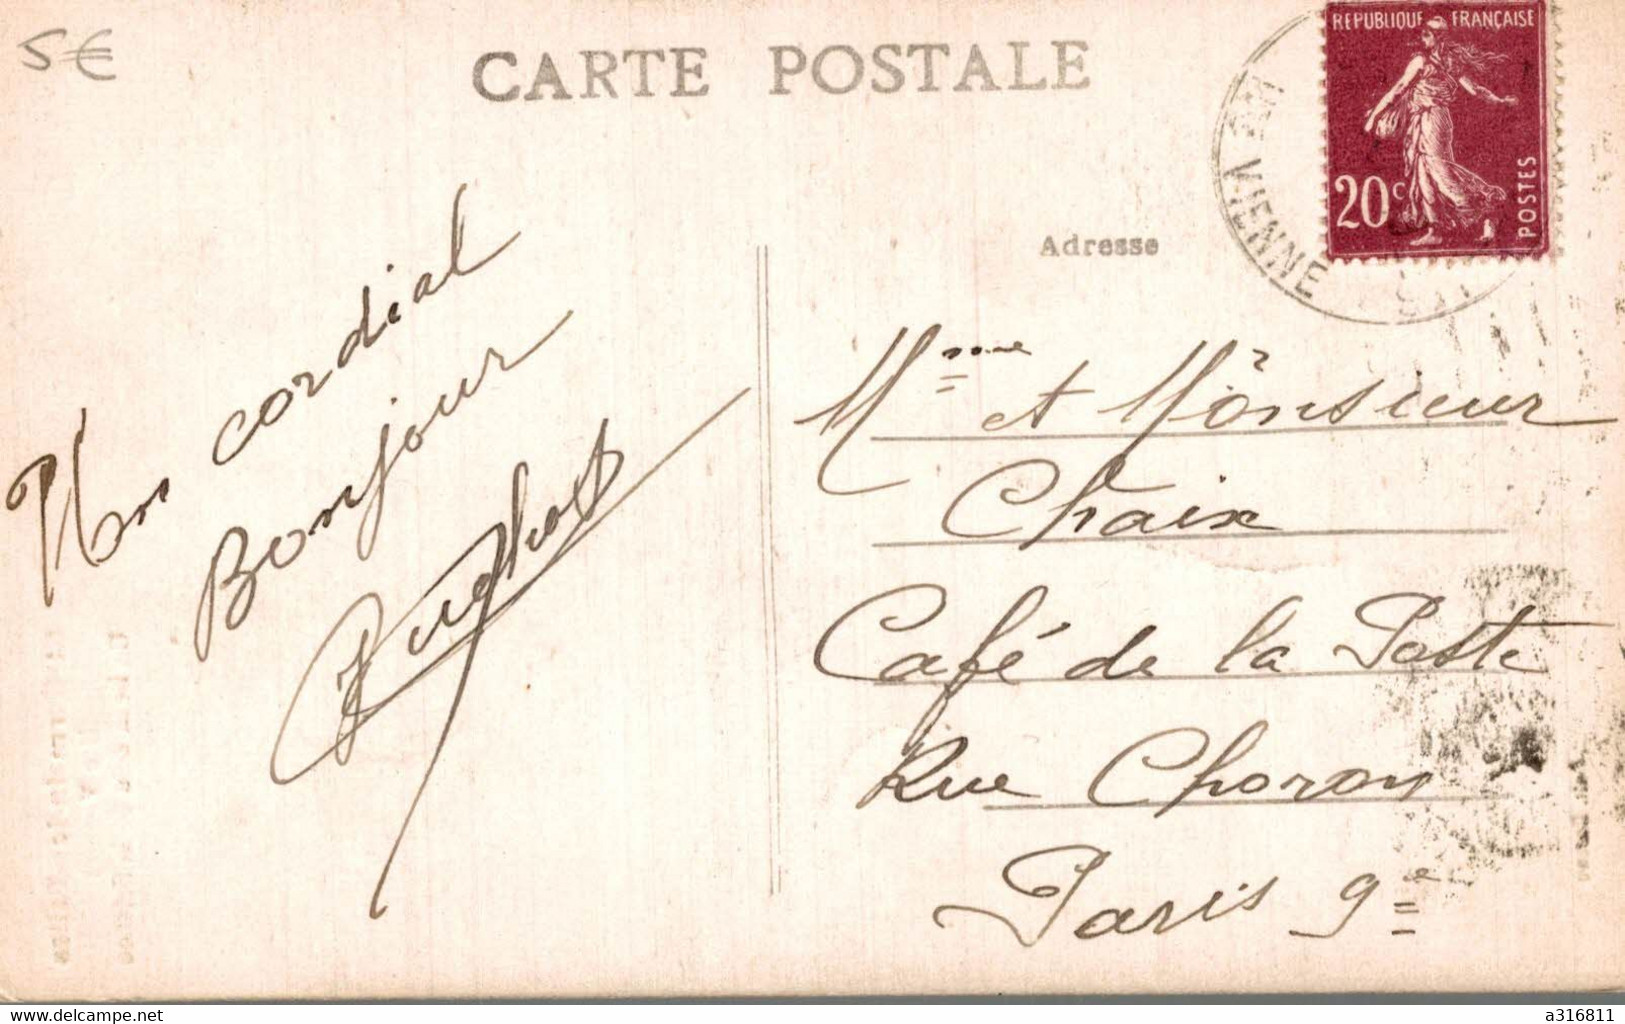 5€
CARTE POSTALE
REPUBLIQUE FRANÇAISE
20c
POSTES
VIENNE
Adresse
Mon cordial
Bonjour
Mme et Monsieur
Chaix
Café de la Poste
Rue Choron
Paris 9e
delcampe.net
a316811